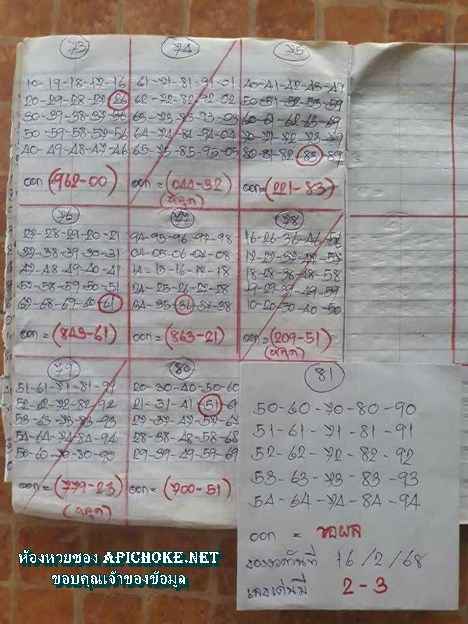 73
10-19-18-17-16
20-29-28-27-26
50-59-58-57-56
40-49-48-47-46
ออก (962-00)
74
61-71-81-91-01
62-72-82-92-02
64-74-84-94-04
65-75-85-95-05
ออก = (044-32)
(หลุด)
75
40-41-42-43-49
50-51-52-53-59
60-61-62-63-69
80-81-82-83-89
ออก = (221-83)
76
22-28-29-20-21
32-38-39-30-31
42-48-49-40-41
52-58-59-50-51
62-68-69-60-61
ออก = (843-61)
77
94-95-96-97-98
04-05-06-07-08
14-15-16-17-18
24-25-26-27-28
34-35-36-37-38
ออก = (863-21)
78
16-26-36-46-56
18-28-38-48-58
19-29-39-49-59
10-20-30-40-50
ออก = (209-51)
(หลุด)
79
51-61-71-81-91
52-62-72-82-92
53-63-73-83-93
54-64-74-84-94
50-60-70-80-90
ออก = (779-23)
(หลุด)
80
20-30-40-50-60
21-31-41-51-61
28-38-48-58-68
29-39-49-59-69
ออก = (700-51)
81
50-60-70-80-90
51-61-71-81-91
52-62-72-82-92
53-63-73-83-93
54-64-74-84-94
ออก = ขอผล
ของวันที่ 16/2/68
เลขเด่นมี 2-3
ห้องหวยซอง APICHOKE.NET
ขอบคุณเจ้าของข้อมูล